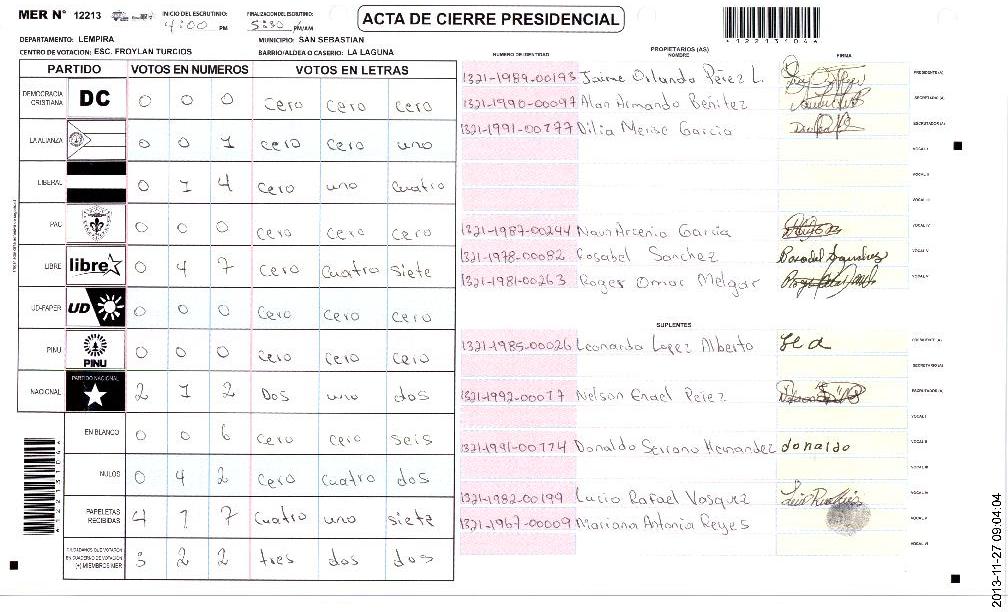 MER N° 12213 INICIO DEL ESCRUTINIO: 4:00 PM FINALIZACION DEL ESCRUTINIO: 5:30 PM/AM
ACTA DE CIERRE PRESIDENCIAL
DEPARTAMENTO: LEMPIRA MUNICIPIO: SAN SEBASTIAN
CENTRO DE VOTACION: ESC. FROYLAN TURCIOS BARRIO/ALDEA O CASERIO: LA LAGUNA
1221310 4
PARTIDO VOTOS EN NUMEROS VOTOS EN LETRAS
DEMOCRACIA CRISTIANA DC 0 0 0 cero cero cero
LA ALIANZA 0 0 1 cero cero uno
LIBERAL 0 1 4 cero uno cuatro
PAC 0 0 0 cero cero cero
LIBRE libre 0 4 7 cero cuatro siete
UD-FAPER UD 0 0 0 cero cero cero
PINU PINU 0 0 0 cero cero cero
NACIONAL PARTIDO NACIONAL 2 1 2 Dos uno dos
EN BLANCO 0 0 6 cero cero seis
NULOS 0 4 2 cero cuatro dos
PAPELETAS RECIBIDAS 4 1 7 cuatro uno siete
CIUDADANOS QUE VOTARON EN CUADERNO DE VOTACION (+) MIEMBROS MER 3 2 2 tres dos dos
PROPIETARIOS (AS)
NUMERO DE IDENTIDAD NOMBRE FIRMA
1321-1989-00193 Jaime Orlando Pérez L. PRESIDENTE (A)
1321-1990-00097 Alan Armando Benitez SECRETARIO (A)
1321-1991-00177 Dilia Merise Garcia ESCRUTADOR (A)
VOCAL I
VOCAL II
VOCAL III
1321-1987-00244 Naun Arcenio Garcia VOCAL IV
1321-1978-00082 Rosabel Sanchez VOCAL V
1321-1981-00263 Roger Omar Melgar VOCAL V
SUPLENTES
1321-1985-00026 Leonardo Lopez Alberto PRESIDENTE (A)
SECRETARIO (A)
1321-1992-00077 Nelson Enael Pérez ESCRUTADOR (A)
VOCAL I
1321-1991-00174 Donaldo Serrano Hernandez donaldo VOCAL II
VOCAL III
1321-1982-00199 Lucio Rafael Vasquez VOCAL IV
1321-1967-00009 Mariana Antonia Reyes VOCAL V
VOCAL VI
2013-11-27 09:04:04